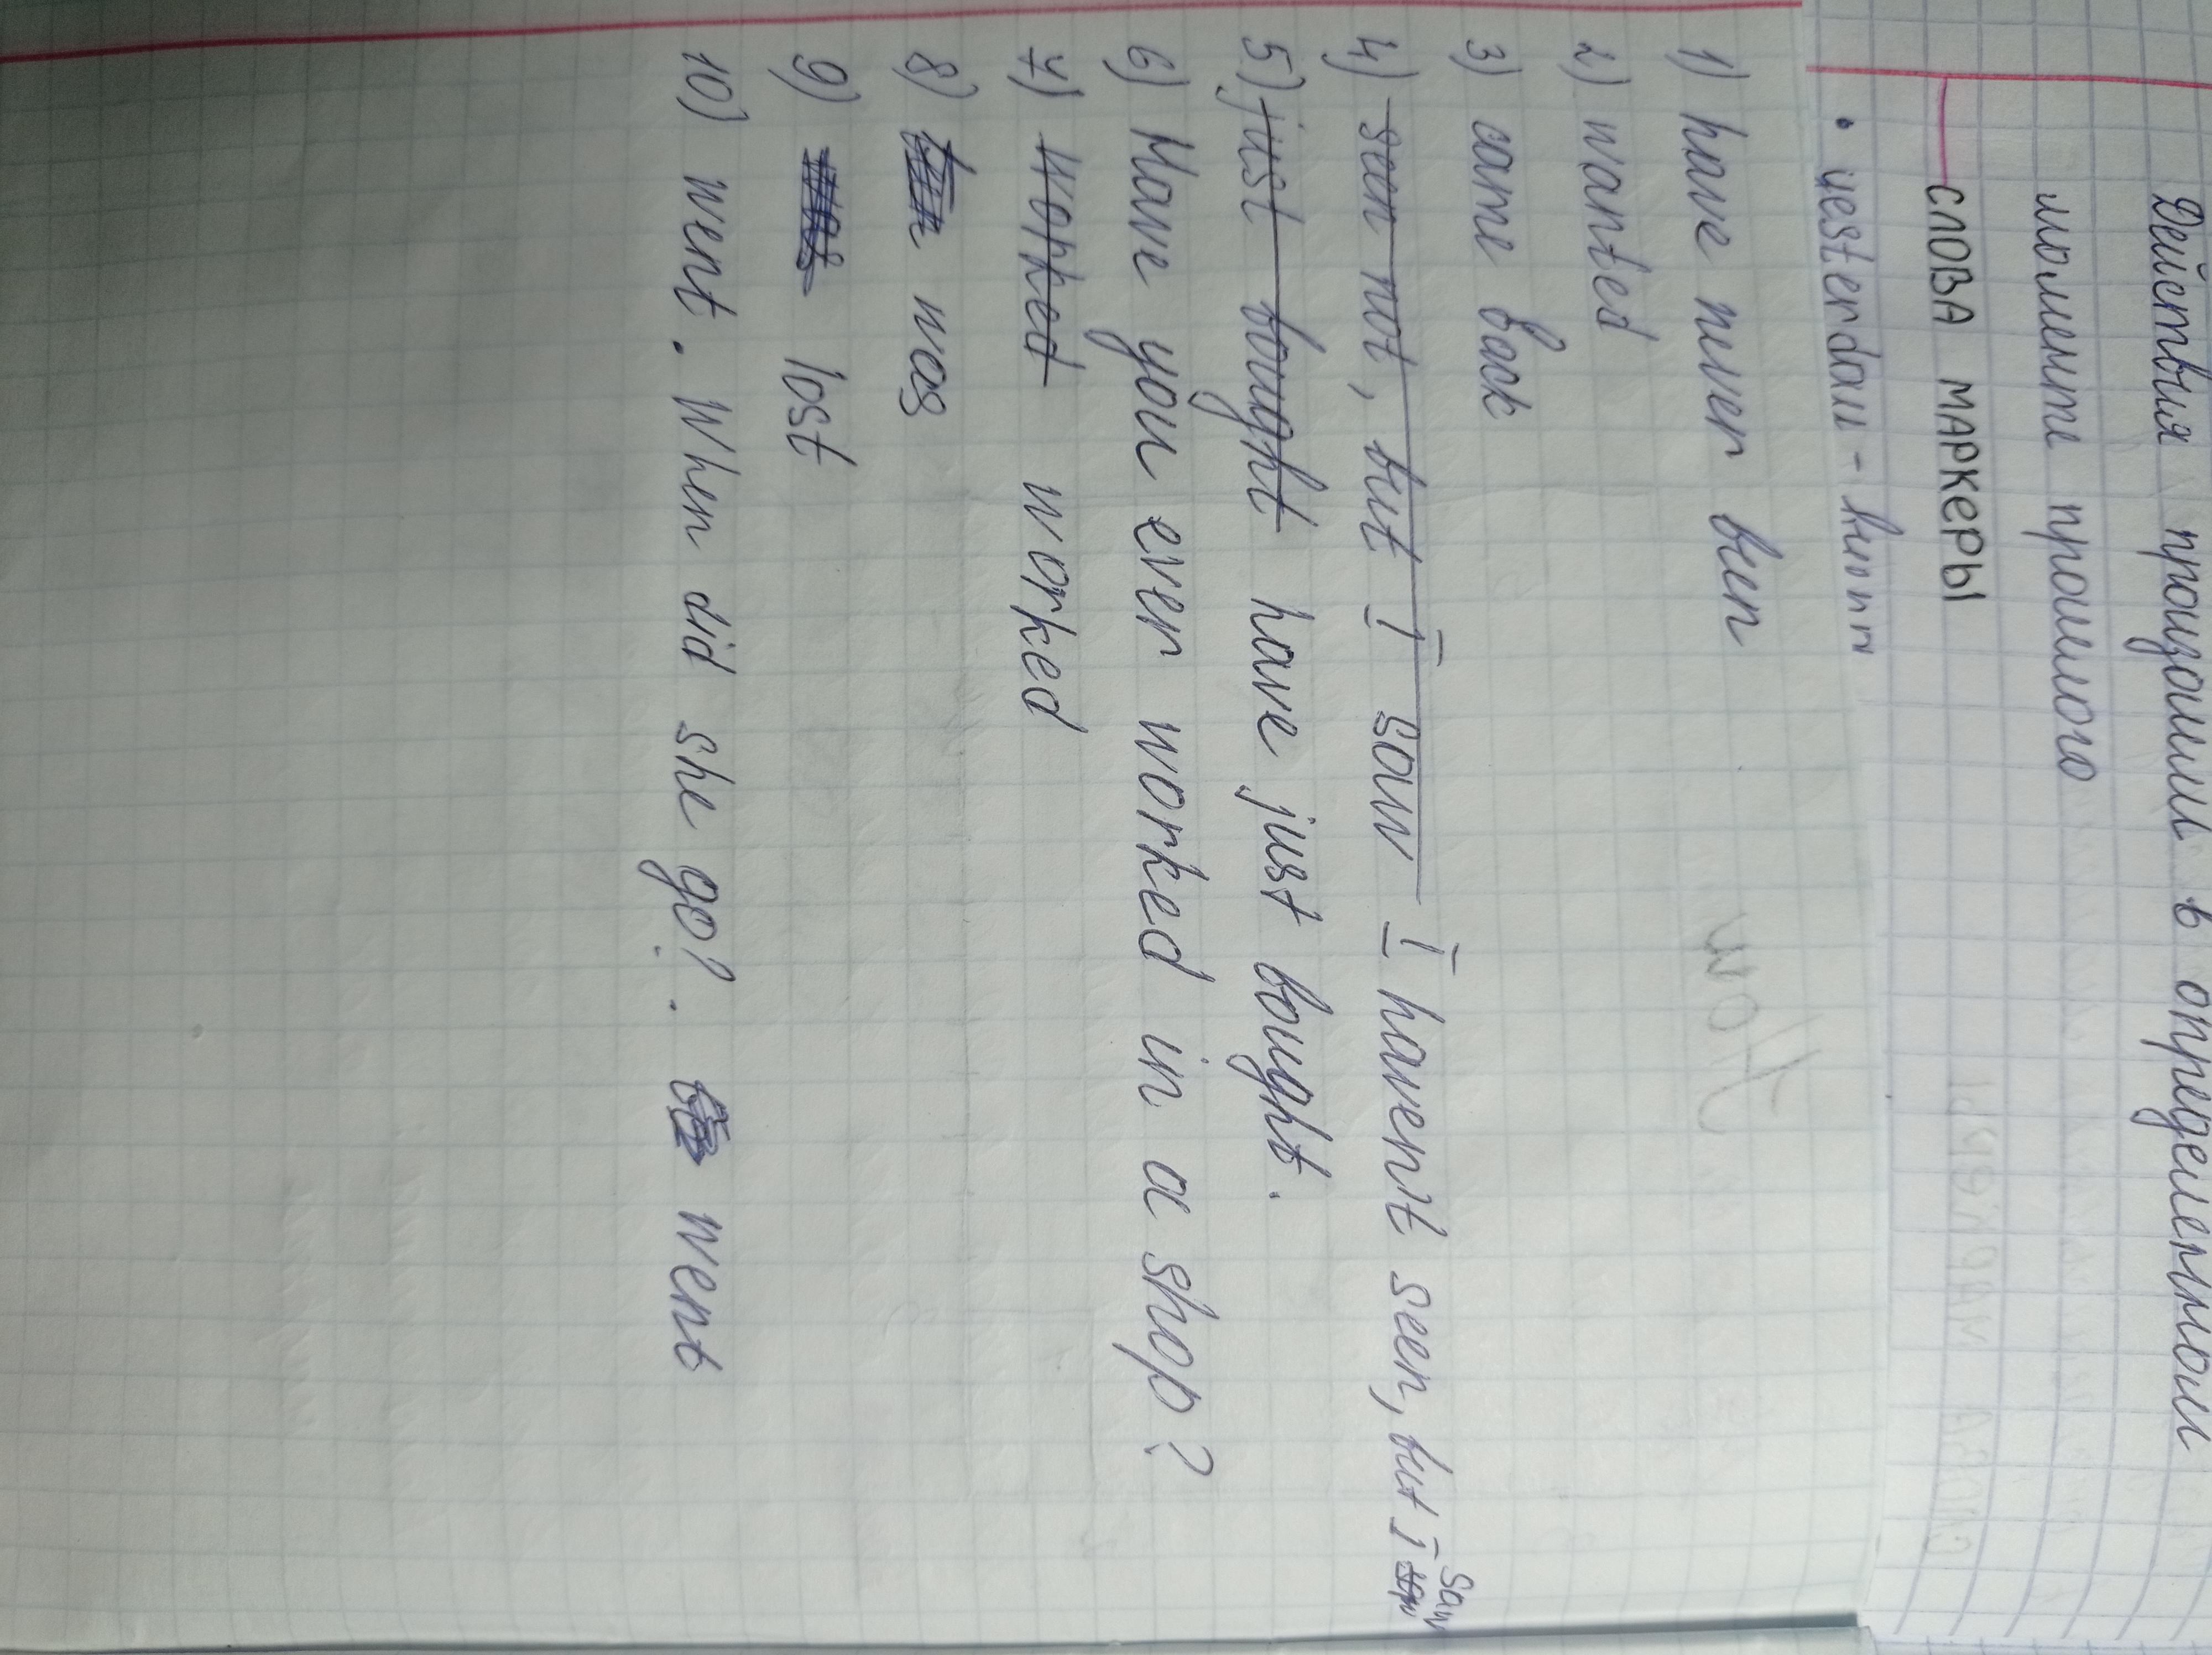 Действия произошли в определенном
моменте прошлого
СЛОВА МАРКЕРЫ
• yesterday -
1) have never been
2) wanted
3) came back
4) seen not, but I saw I haven't seen, but I saw
5) just bought have just bought.
6) Have you ever worked in a shop?
7) worked worked
8) was
9) lost
10) went. When did she go?. went